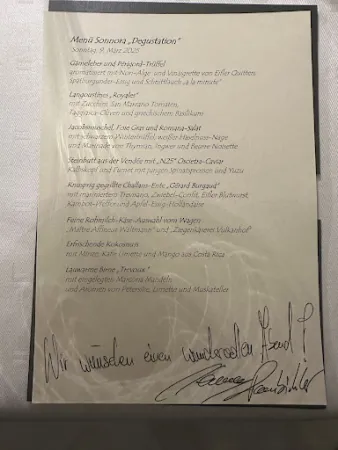 Menü Sonnora „Degustation“
Sonntag, 9. März 2025
Gänseleber und Périgord-Trüffel
aromatisiert mit Nori-Alge und Vinaigrette von Eifler Quitten,
und Schnittlauch „à la minute“
Langoustines „Royales“
mit Zucchini, San Marzano Tomaten,
Taggiasca-Oliven und griechischem Basilikum
Jacobsmuschel, Foie Gras und Romana-Salat
mit schwarzem Wintertrüffel, weißer Haselnuss-Nage
und Marinade von Thymian, Ingwer und Beurre Noisette
Steinbutt aus der Vendée mit „N25“ Oscietra-Caviar
Kalbskopf und Fumet mit jungen Spinatspitzen und Yuzu
Knusprig gegrillte Challans-Ente „Gérard Burgaud“
mit mariniertem Treviano, Zwiebel-Confit, Eifler Blutwurst,
Kampot-Pfeffer und Apfel-Essig-Hollandaise
Feine Rohmilch-Käse-Auswahl vom Wagen
„Maître Affineur Waltmann“ und „Ziegenkäserei Vulkanhof“
Erfrischende Kokosnuss
mit Minze, Kaffir Limette und Mango aus Costa Rica
Lauwarme Birne
mit eingelegten Mandeln
und
Wir wünschen einen wundervollen Abend!